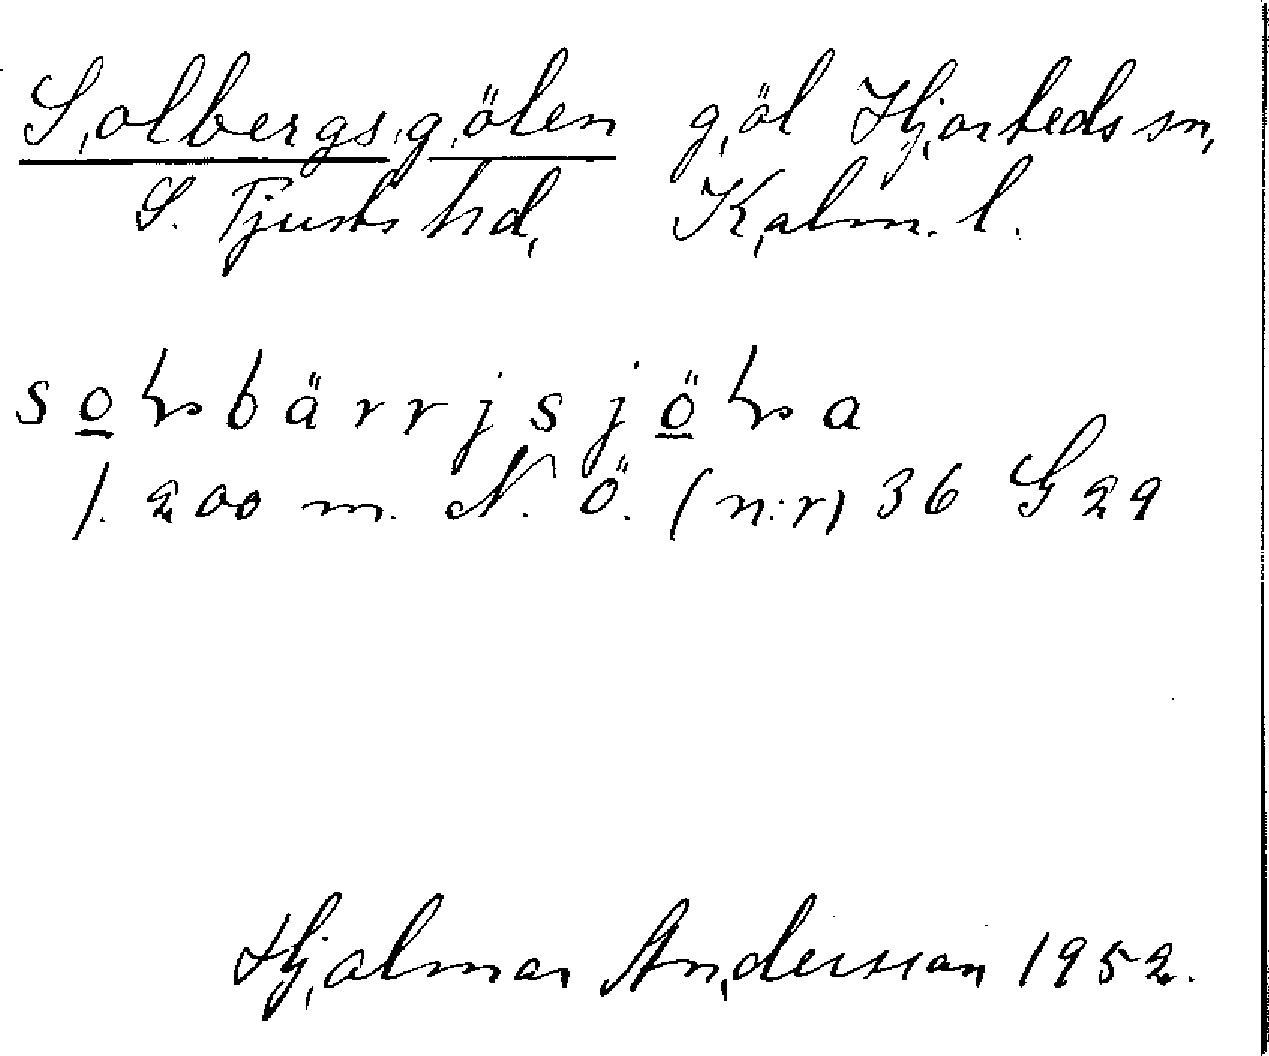 Solbergsgölen göl Hjorteds sn,
S. Tjusts hd, Kalm. l.
solbärrjsjöla
1. 200 m. N. Ö. (n:r) 36 G 29
Hjalmar Andersson 1952.